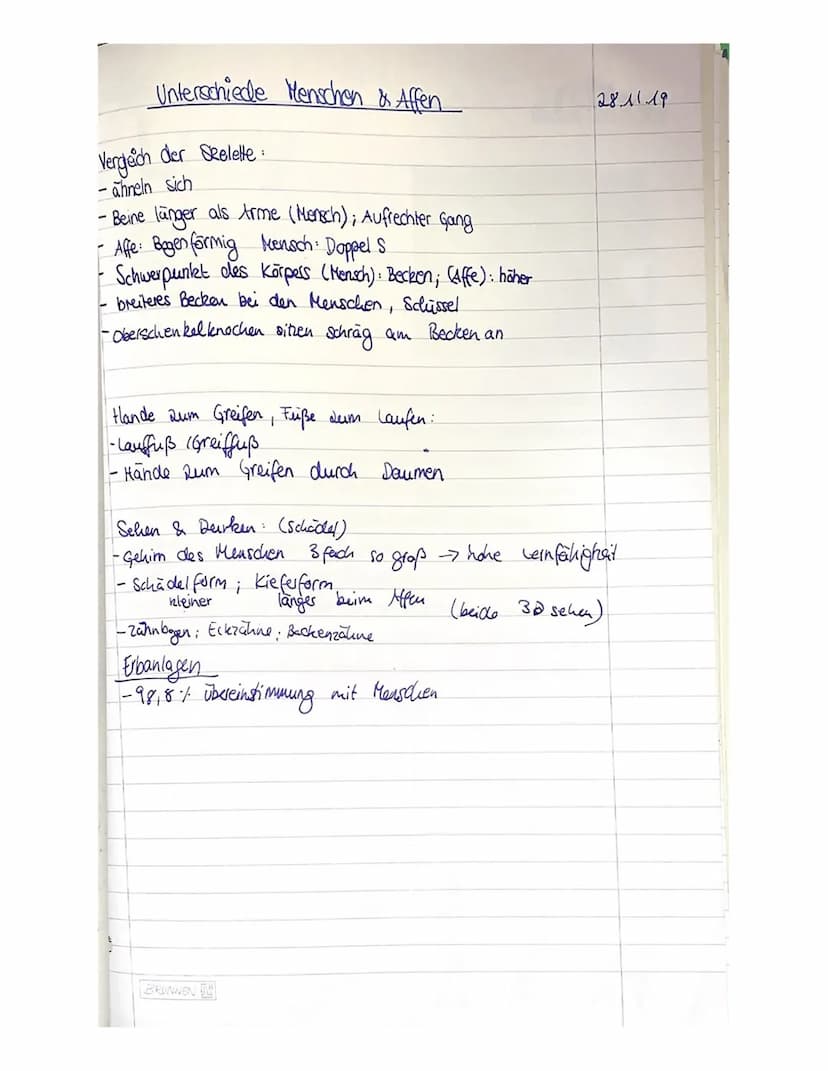 Unterschiede Menschen & Affen
28.11.19
Vergleich der Skelette:
- ähneln sich
- Beine länger als Arme (Mensch); Aufrechter Gang
- Affe: Bogenförmig Mensch: Doppel S
- Schwerpunkt des Körpers (Mensch): Becken; (Affe): höher
- breiteres Becken bei den Menschen, Schüssel
- Oberschenkelknochen sitzen schräg am Becken an
Hände zum Greifen, Füße zum Laufen:
- Lauffuß / Greiffuß
- Hände zum Greifen durch Daumen
Sehen & Denken: (Schädel)
- Gehirn des Menschen 3fach so groß → hohe Lernfähigkeit
- Schädelform; Kieferform
kleiner länger beim Affen (beide 3D sehen)
- Zahnbogen; Eckzähne; Backenzähne
Erbanlagen
- 98,8% Übereinstimmung mit Menschen
BRUNNEN